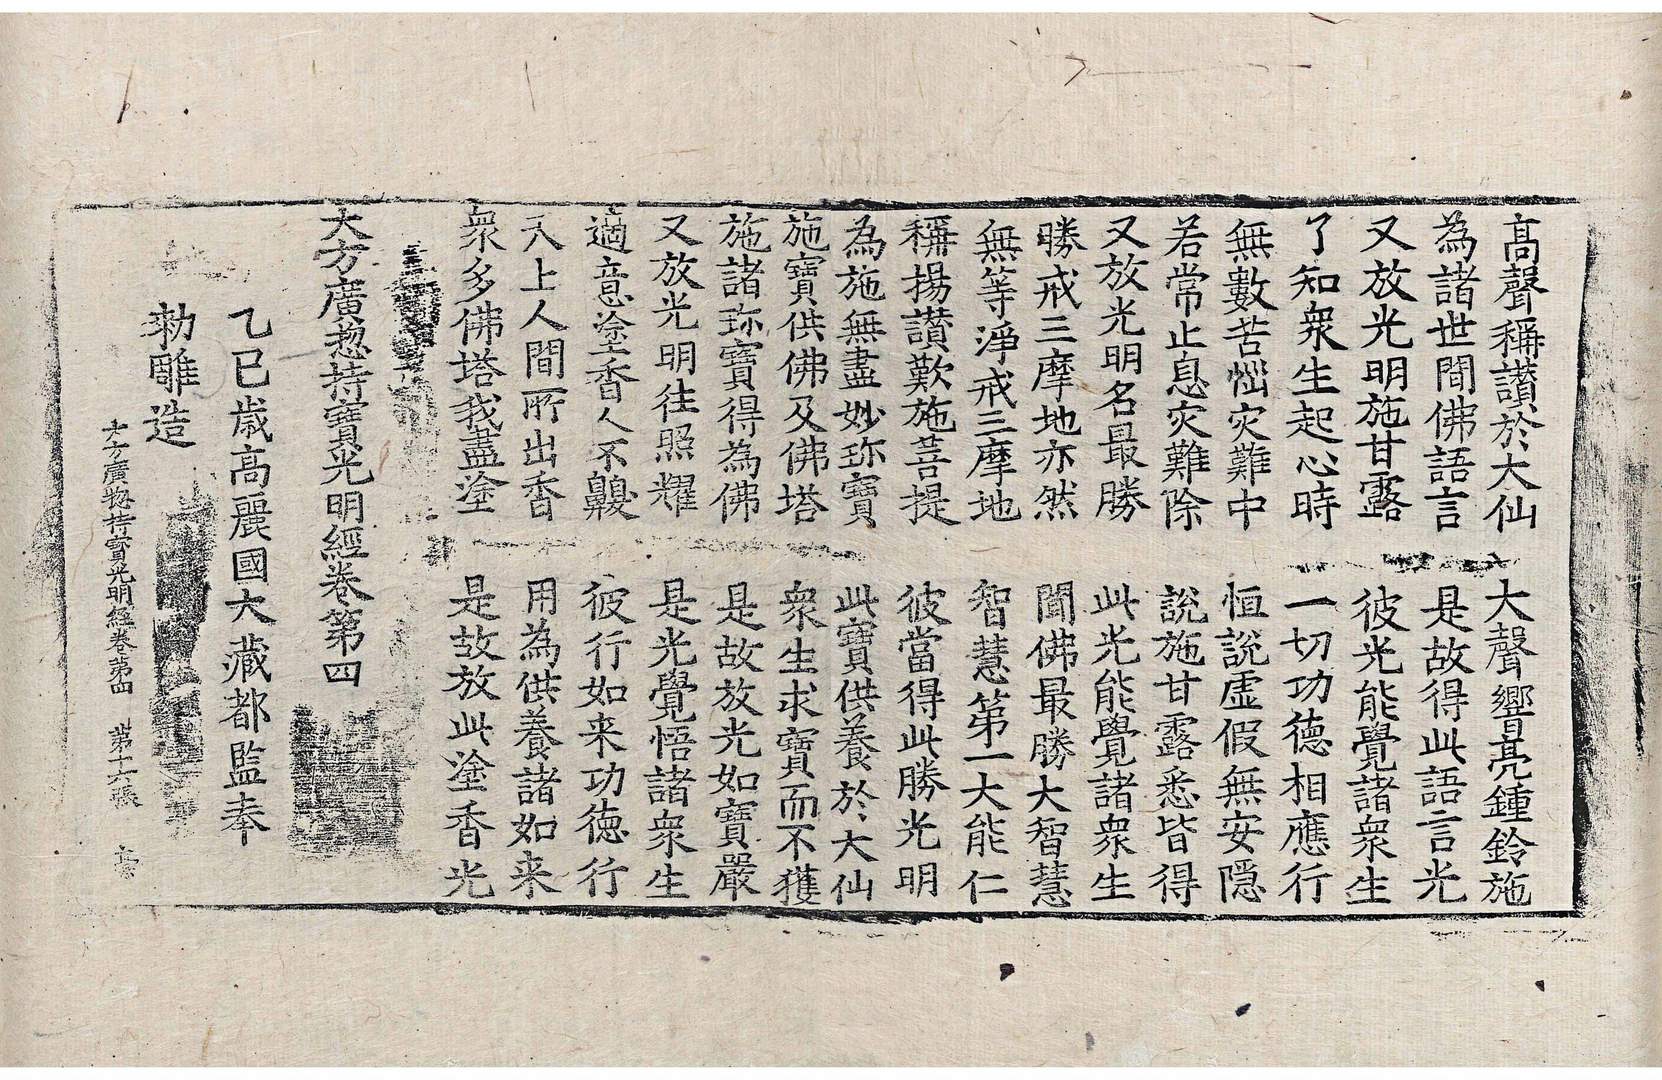 高聲稱讃於大仙　大聲響亮鍾鈴施
為諸世閒佛語言　是故得此語言光
又放光明施甘露　彼光能覺諸衆生
了知衆生起心時　一切功德相應行
無數苦惱灾難中　恒說虛假無安隱
若常止息灾難除　說施甘露悉皆得
又放光明名最勝　此光能覺諸衆生
勝戒三摩地亦然　聞佛最勝大智慧
無等淨戒三摩地　智慧第一大能仁
稱揚讃歎施菩提　彼當得此勝光明
為施無盡妙珎寶　此寶供養於大仙
施寶供佛及佛塔　衆生求寶而不獲
施諸珎寶得為佛　是故放光如寶嚴
又放光明往照耀　是光覺悟諸衆生
適意塗香人不齅　彼行如来功德行
天上人間所出香　用為供養諸如来
衆多佛塔我盡塗　是故放此塗香光
大方廣揔持寶光明經卷第四
乙巳歲高麗國大藏都監奉
勑雕造
大方廣揔持寶光明經卷第四　第十六張